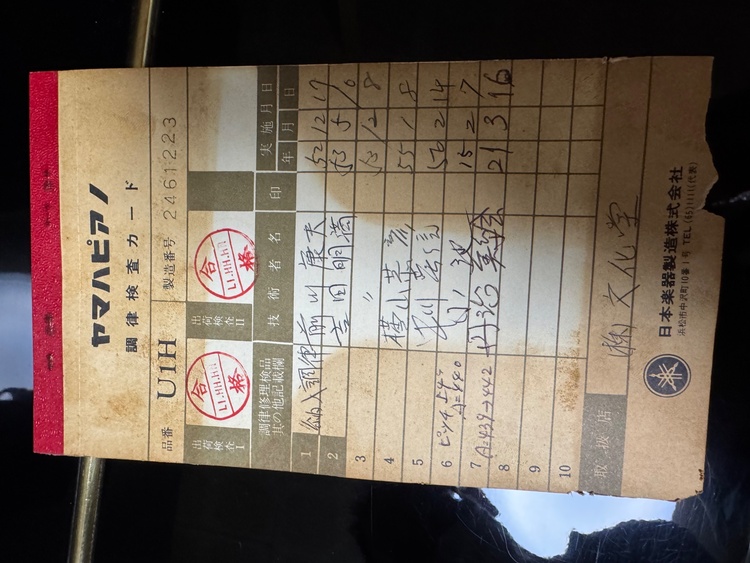 ヤマハピアノ
調律検査カード
品番 U1H 製造番号 2461223
出荷検査I 合格 出荷検査II 合格
調律修理検品其の他記載欄 技術者名 印 実施月日
年 月 日
1 納入調律 前川康夫 52 12 19
2 吉田 53 5 10
3 〃 53 12 8
4 横山 55 1 8
5 56 2 14
6 ピッチ上げ A=440 15 2 7
7 A=439→442 丹治 21 3 16
8
9
10
取扱店 ㈱文化堂
日本楽器製造株式会社
浜松市中沢町10番1号 TEL (65)1111(代表)